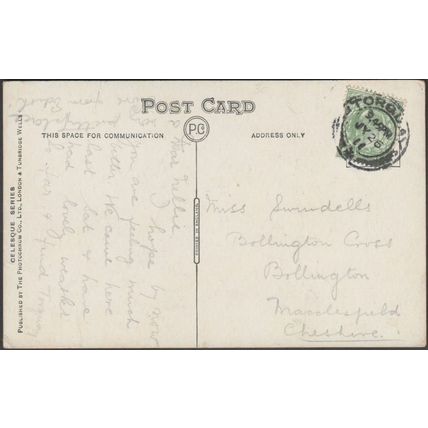 POST CARD
THIS SPACE FOR COMMUNICATION
P.C.
ADDRESS ONLY
TORQUAY
CELESQUE SERIES
PUBLISHED BY THE PHOTOCHROM CO., LTD., LONDON & TUNBRIDGE WELLS
PRINTED IN ENGLAND
Dear Nellie
I hope by now
you are feeling much
better. We came here
last Sat & have
had lovely weather
so far & find Torquay
Miss Swindells
Bollington Cross
Bollington
Macclesfield
Cheshire.